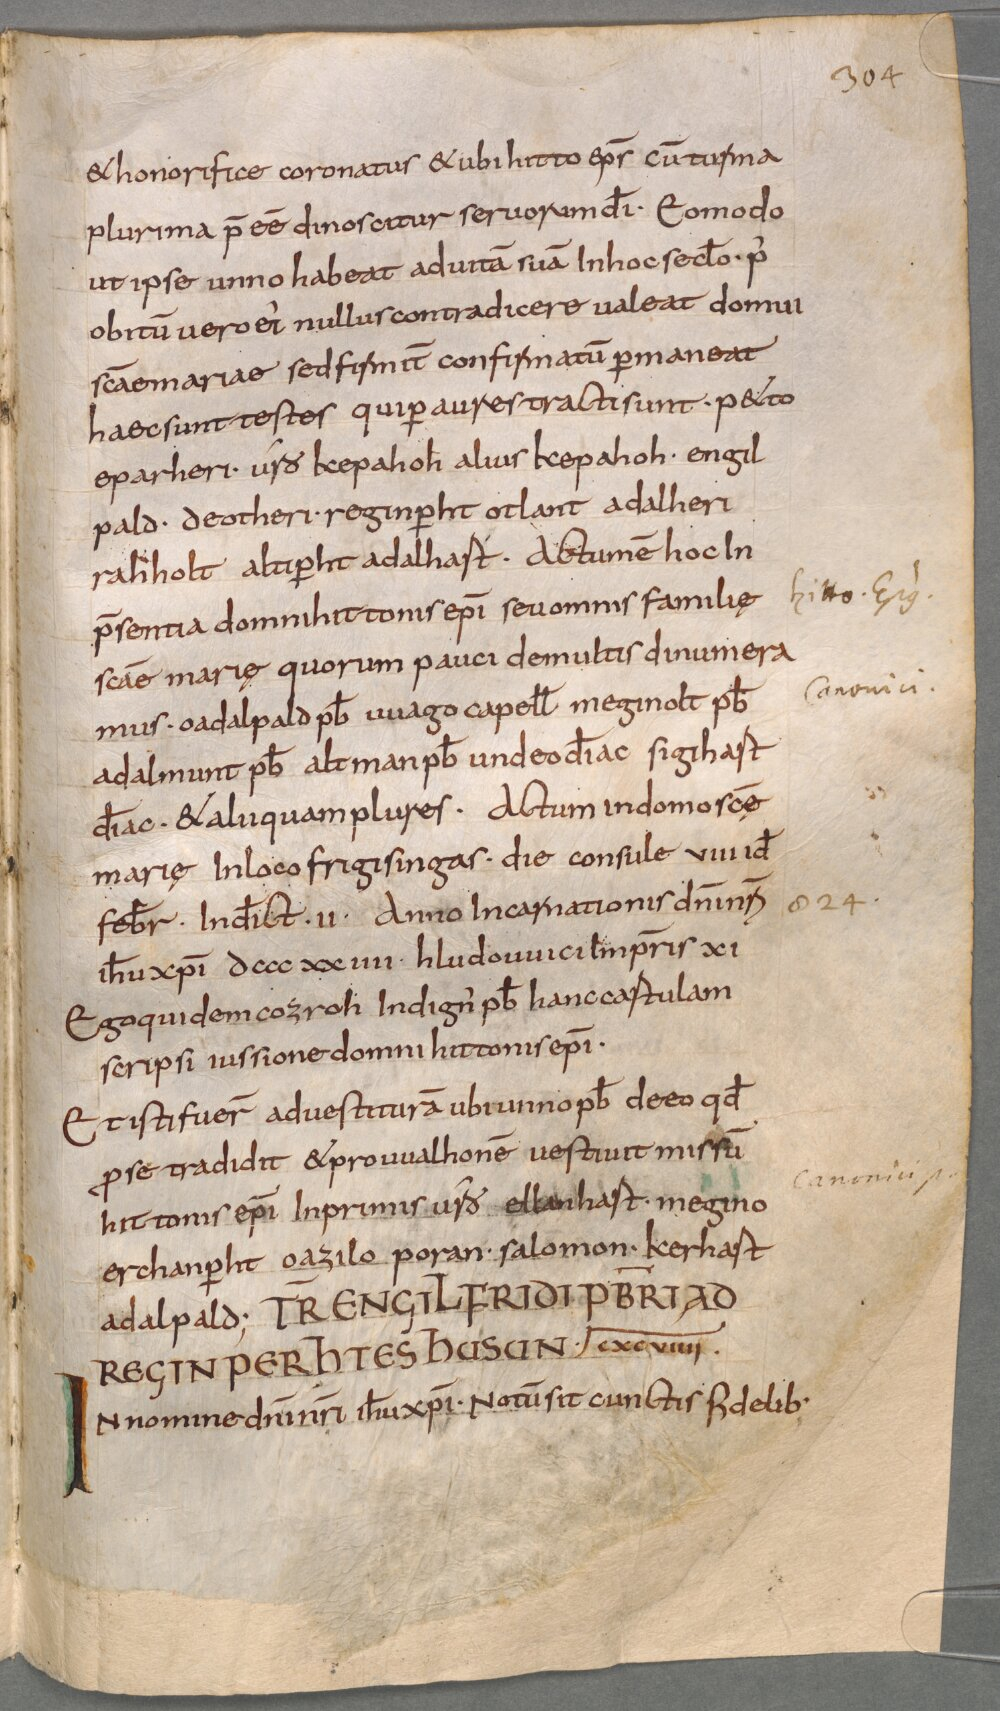 304
&honorifice coronatus &ubi hitto ep̄s cū turma
plurima p̄eē dinoscitur seruorum dī· Eo modo
ut ipse unno habeat ad uitā suā In hoc sec̄lo· p̓
obitū uero ei̓ nullus contradicere ualeat domui
sc̄ae mariae sed firmit̄ confirmatū ꝑmaneat
haec sunt testes qui ꝑ aures tracti sunt· p&to
eparheri· urs̄ kepahoh alius kepahoh· engil
pald· deotheri· reginꝑht otlant adalheri
rahholt altiꝑht adalhast· Actum ē hoc In
p̄sentia domni hittonis ep̄i seu omnis familię
hitto. Epis.
sc̄ae marię quorum pauci de multis dinumera
canonici.
mus· oadalpald pb̄ uuago capell̄ meginolt pb̄
adalmunt pb̄ altman pb̄ undeo diac̄ sigihast
diac̄· &alii quam plures· Actum in domo sc̄ę
marię In loco frigisingas· die consule VIII id̄
feb̄r· Indict̄· II· Anno Incarnationis dn̄i nr̄i
824.
ih̄u xp̄i dccc xxiiii· hludouuici Imp̄ris xi
Ego quidem cozroh Indign̓ pb̄ hanc cartulam
scripsi iussione domni hittonis ep̄i·
Et isti fuer̄ ad uestiturā ubi unno pb̄ de eo qd̄
ꝓ se tradidit &pro uualhonē uestiuit missū
canonici
hittonis ep̄i In primis urs̄ ellanhast· megino
erchanꝑht oazilo poran· salomon· kerhast
adalpald; TR̄ ENGILFRIDI PB̄RI AD
REGINPERHTESHUSUN· cxcviiii.
In nomine dn̄i nr̄i ih̄u xp̄i· Notū sit cunctis fidelib·